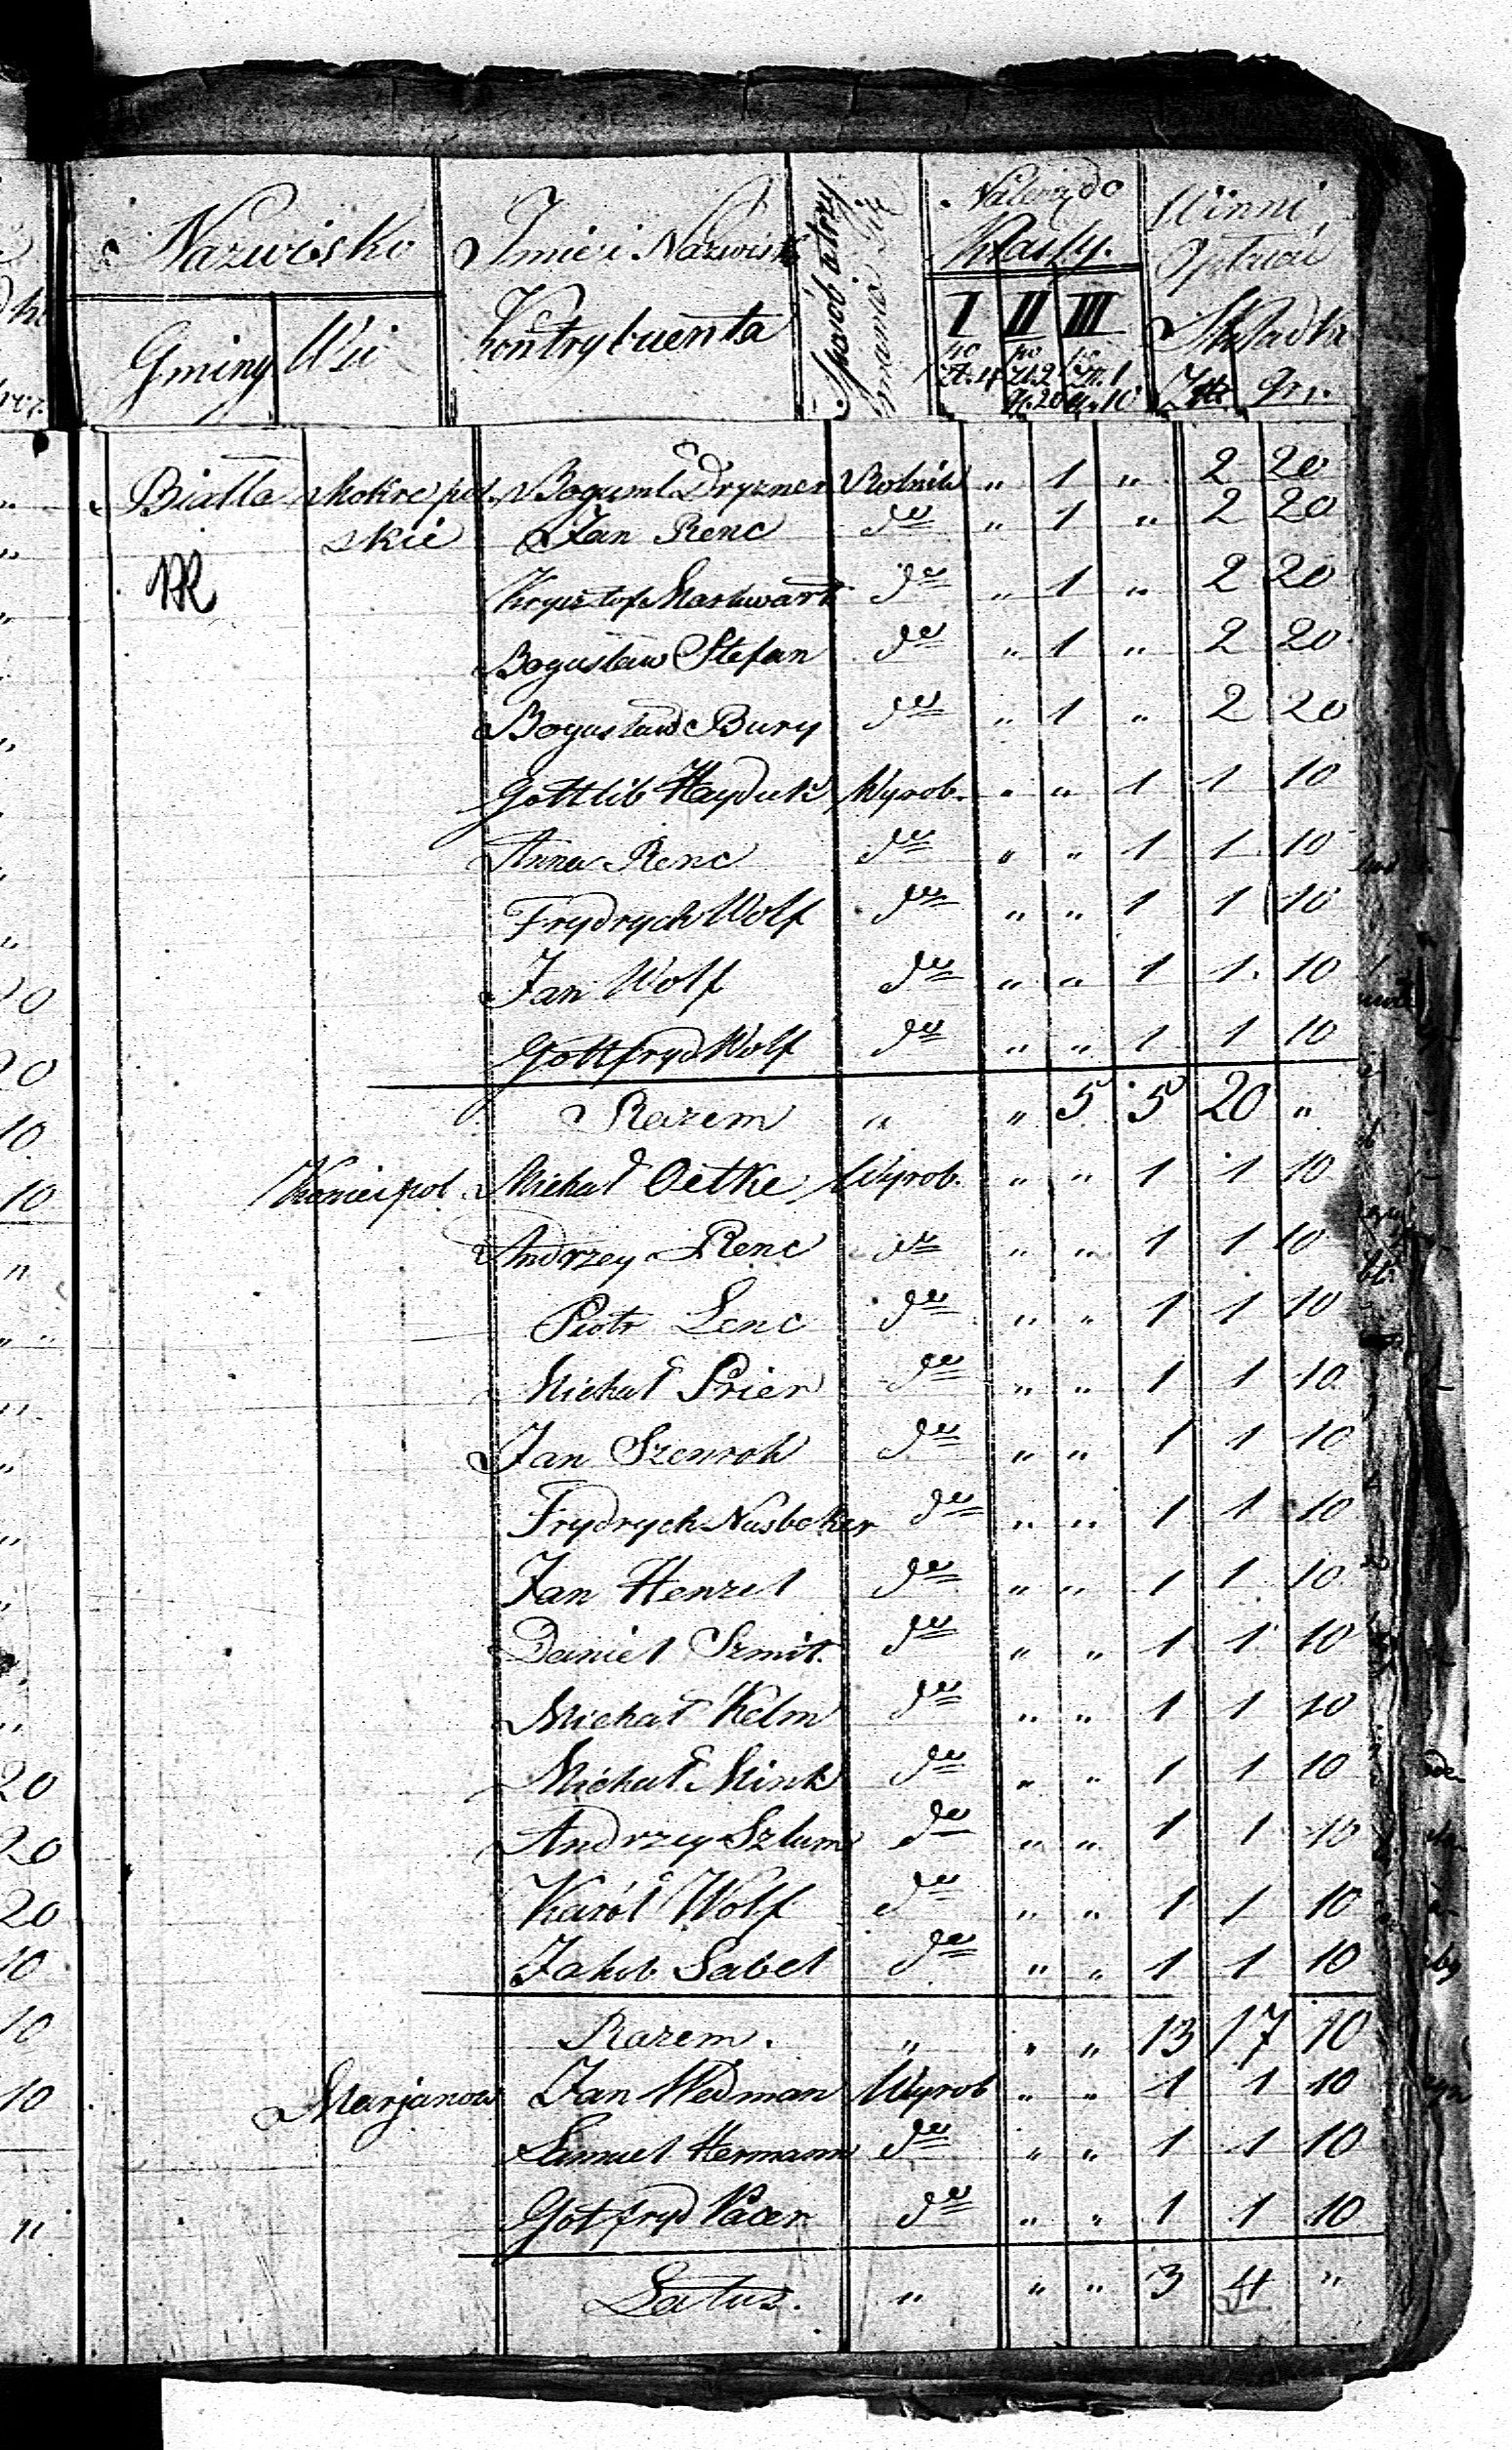 Nazwisko Imie i Nazwisk Sposób utrzymania się Należą do Klassy. Winni Opłacić Składki
Gminy Wsi Kontrybuenta I II III
po Zł. 4 po Zł. 2 gr. 20 po Zł. 1 gr. 10 Złt. gr.
Bialla Mokre pol Bogumł Dryzner Rolnik " 1 " 2 20
skie Jan Renc do " 1 " 2 20
Krysztof Markwart do " 1 " 2 20
Bogusław Stefan do " 1 " 2 20
Bogusław Bury do " 1 " 2 20
Gottlib Hayduk Wyrob. " " 1 1 10
Anna Renc do " " 1 1 10
Frydrych Wolf do " " 1 1 10
Jan Wolf do " " 1 1 10
Gottfryd Wolf do " " 1 1 10
Razem " " 5 5 20 "
Koniecpol Michał Oetke Wyrob. " " 1 1 10
Andrzey Renc do " " 1 1 10
Piotr Lenc do " " 1 1 10
Michał Prier do " " 1 1 10
Jan Szenrok do " " 1 1 10
Frydrych Nusbeker do " " 1 1 10
Jan Henzel do " " 1 1 10
Daniel Szmit. do " " 1 1 10
Michał Kelm do " " 1 1 10
Michał Mink do " " 1 1 10
Andrzey Szlum do " " 1 1 10
Karól Wolf do " " 1 1 10
Jakób Sabel do " " 1 1 10
Razem. " " " 13 17 10
Marjanow Jan Wedman Wyrob " " 1 1 10
Samuel Hermann do " " 1 1 10
Gotfryd do " " 1 1 10
Latus. " " " 3 4 "